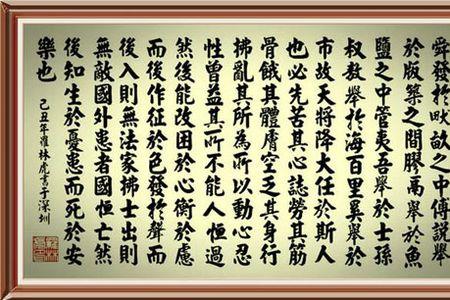 舜發於畎畝之中傅說舉
於版築之間膠鬲舉於魚
鹽之中管夷吾舉於士孫
叔敖舉於海百里奚舉於
市故天將降大任於斯人
也必先苦其心誌勞其筋
骨餓其體膚空乏其身行
拂亂其所為所以動心忍
性曾益其所不能人恒過
然後能改困於心衡於慮
而後作征於色發於聲而
後入則無法家拂士出則
無敵國外患者國恒亡然
後知生於憂患而死於安
樂也
己丑年羅林虎書于深圳